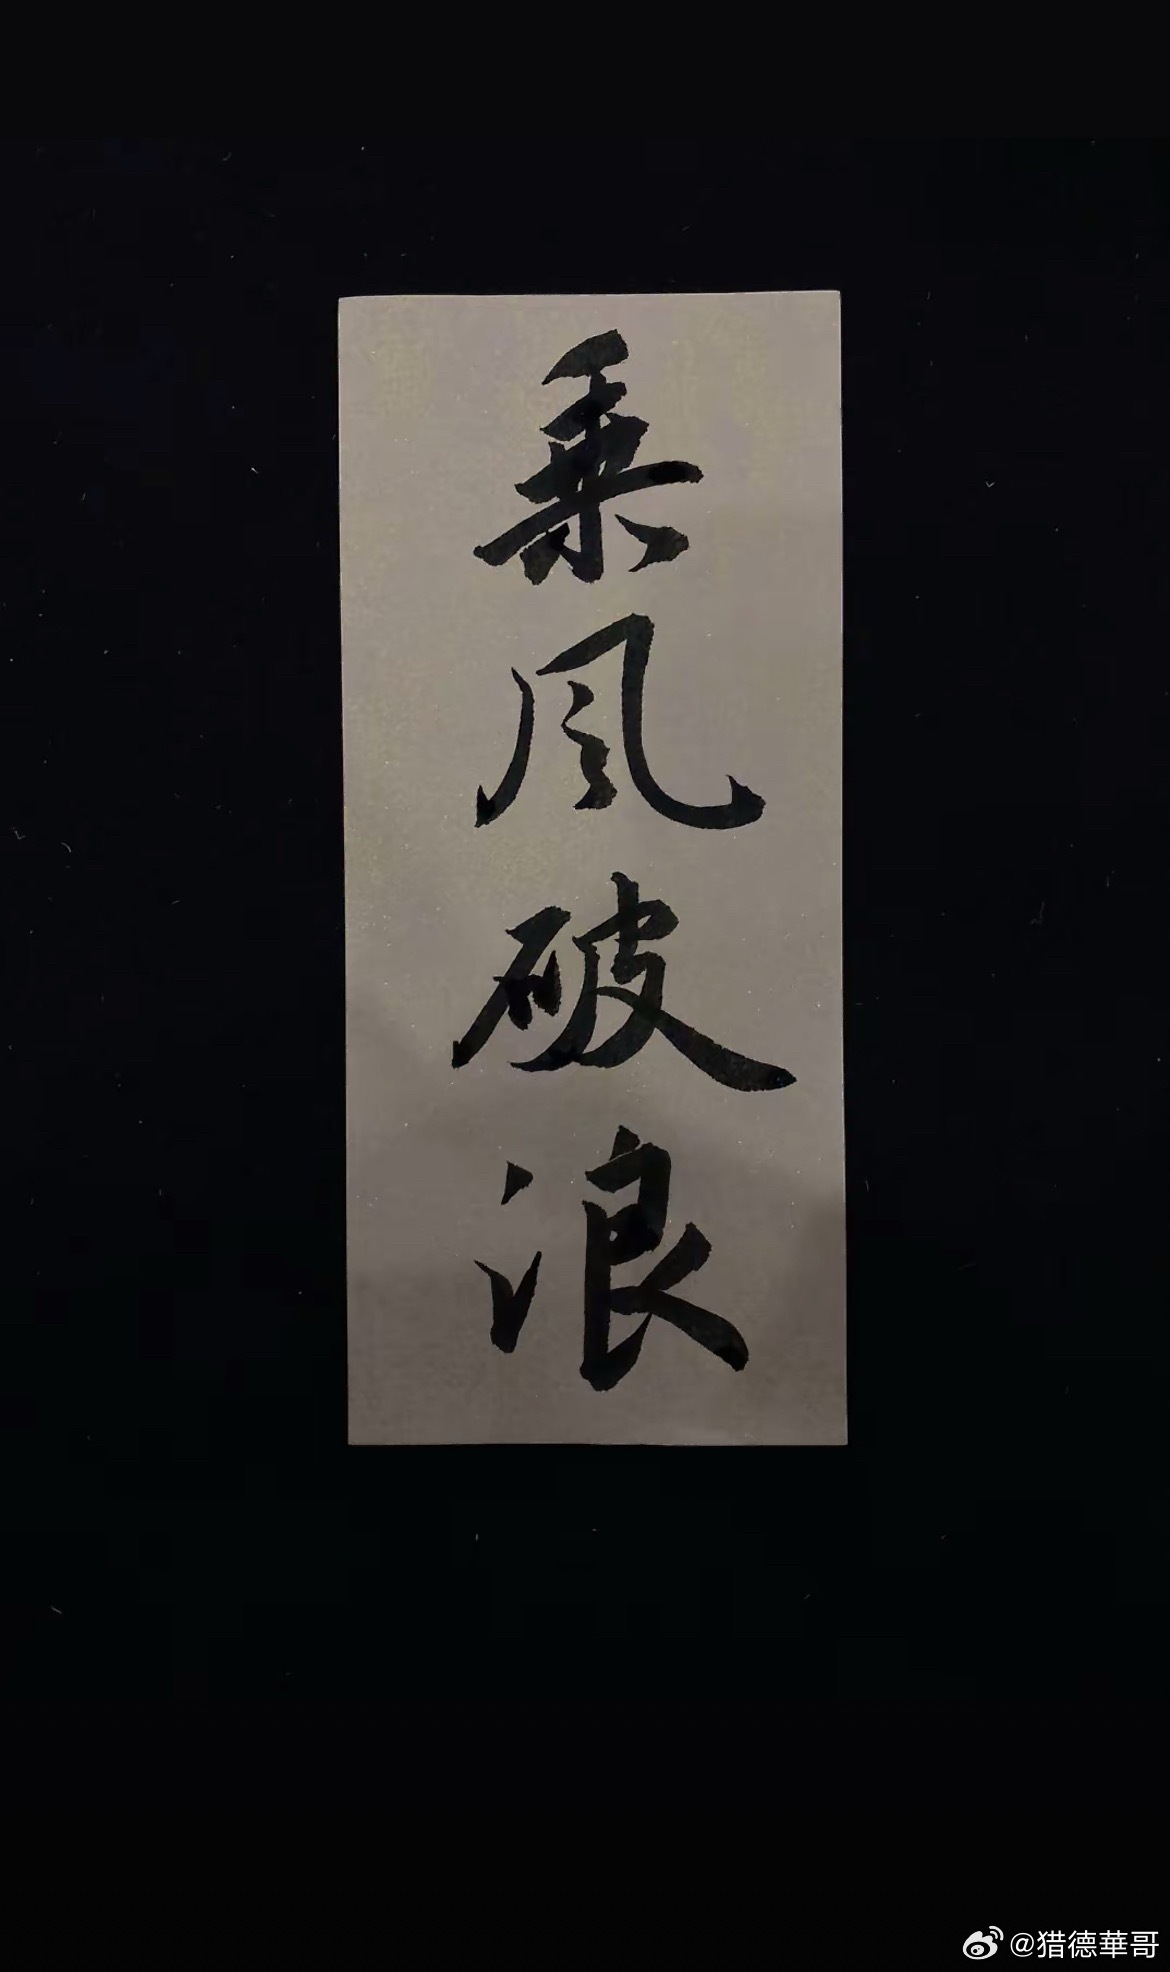 乘风破浪
@猎德華哥